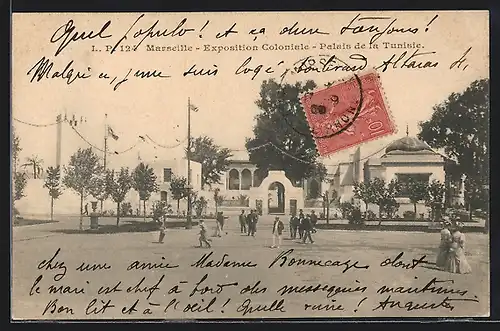 Quel populo! et ça dure toujours!
L. P. 124 Marseille - Exposition Coloniale - Palais de la Tunisie.
Malgré ça, je me suis logé, boulevard
chez une amie Madame Bonnecage dont
le mari est chef à bord des messageries maritimes
Bon lit et à l'oeil! Quelle ruine! Auguste
10